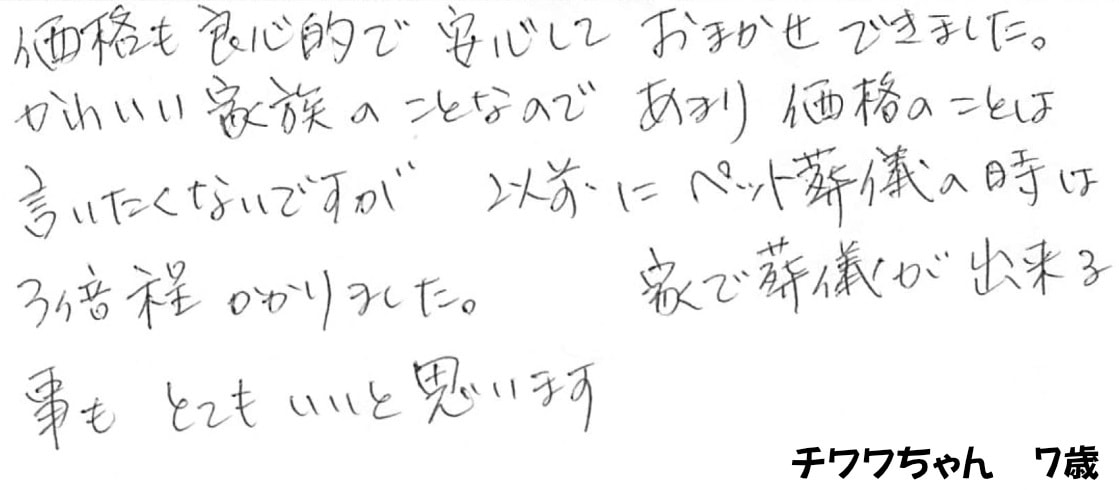 価格も良心的で安心して おまかせできました。
かわいい家族のことなので あまり 価格のことは
言いたくないですが 以前に ペット葬儀の時は
3倍程かかりました。 家で葬儀が出来る
事も とてもいいと思います
チワワちゃん 7歳